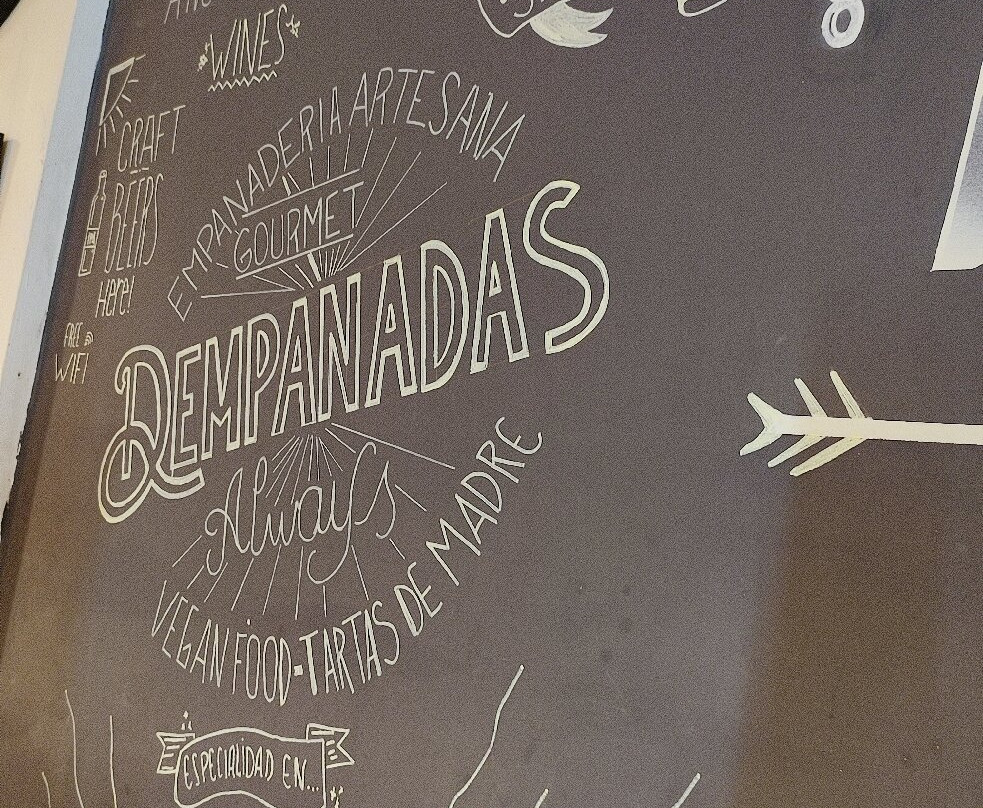 WINES
CRAFT
BEERS
Here!
FREE
WIFI
EMPANADERIA ARTESANA
GOURMET
REMPANADAS
Always
VEGAN FOOD-TARTAS DE MADRE
ESPECIALIDAD EN...